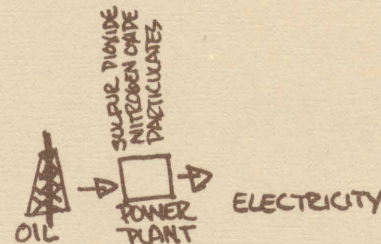 SULFUR DIOXIDE
NITROGEN OXIDE
PARTICULATES
OIL
POWER
PLANT
ELECTRICITY